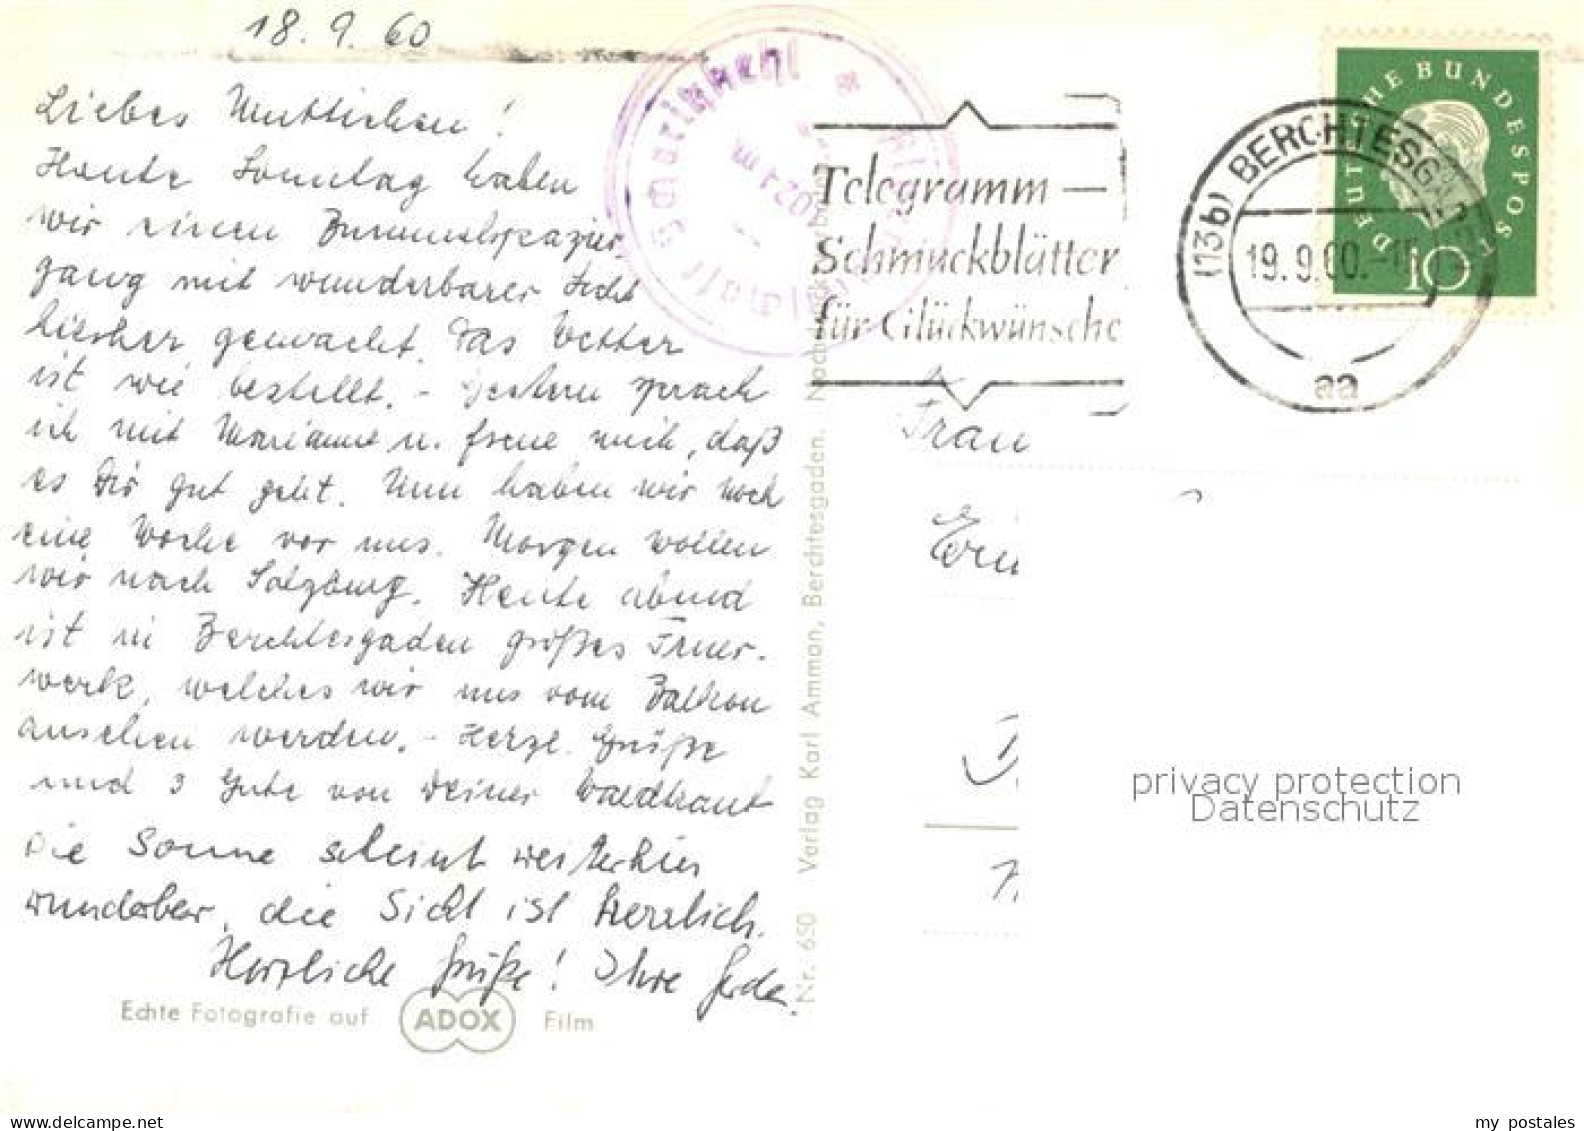 18. 9. 60
Liebes Muttichen!
Heute Sonntag haben
wir einen Bummelspazier,
gang mit wunderbarer Sicht
hierher gemacht. Das Wetter
ist wie bestellt. - Gestern sprach
ich mit Marianne u. freue mich, daß
es Dir gut geht. Nun haben wir noch
eine Woche vor uns. Morgen wollen
wir nach Salzburg. Heute abend
ist in Berchtesgaden großes Feuer-
werk, welches wir uns vom Balkon
ansehen werden. - Herzl. Grüße
und 3 Gute von Deiner Waldtraut
Die Sonne scheint weiterhin
wunderbar, die Sicht ist herrlich.
Herzliche Grüße! Ihre Gerda.
Echte Fotografie auf ADOX Film
Nr. 650 Verlag Karl Ammon, Berchtesgaden. Nachdruck verboten
1024 m
Telegramm —
Schmuckblätter
für Glückwünsche
(13b) BERCHTESGADEN
19. 9. 60.
aa
DEUTSCHE BUNDESPOST
10
Frau
privacy protection
Datenschutz
my postales